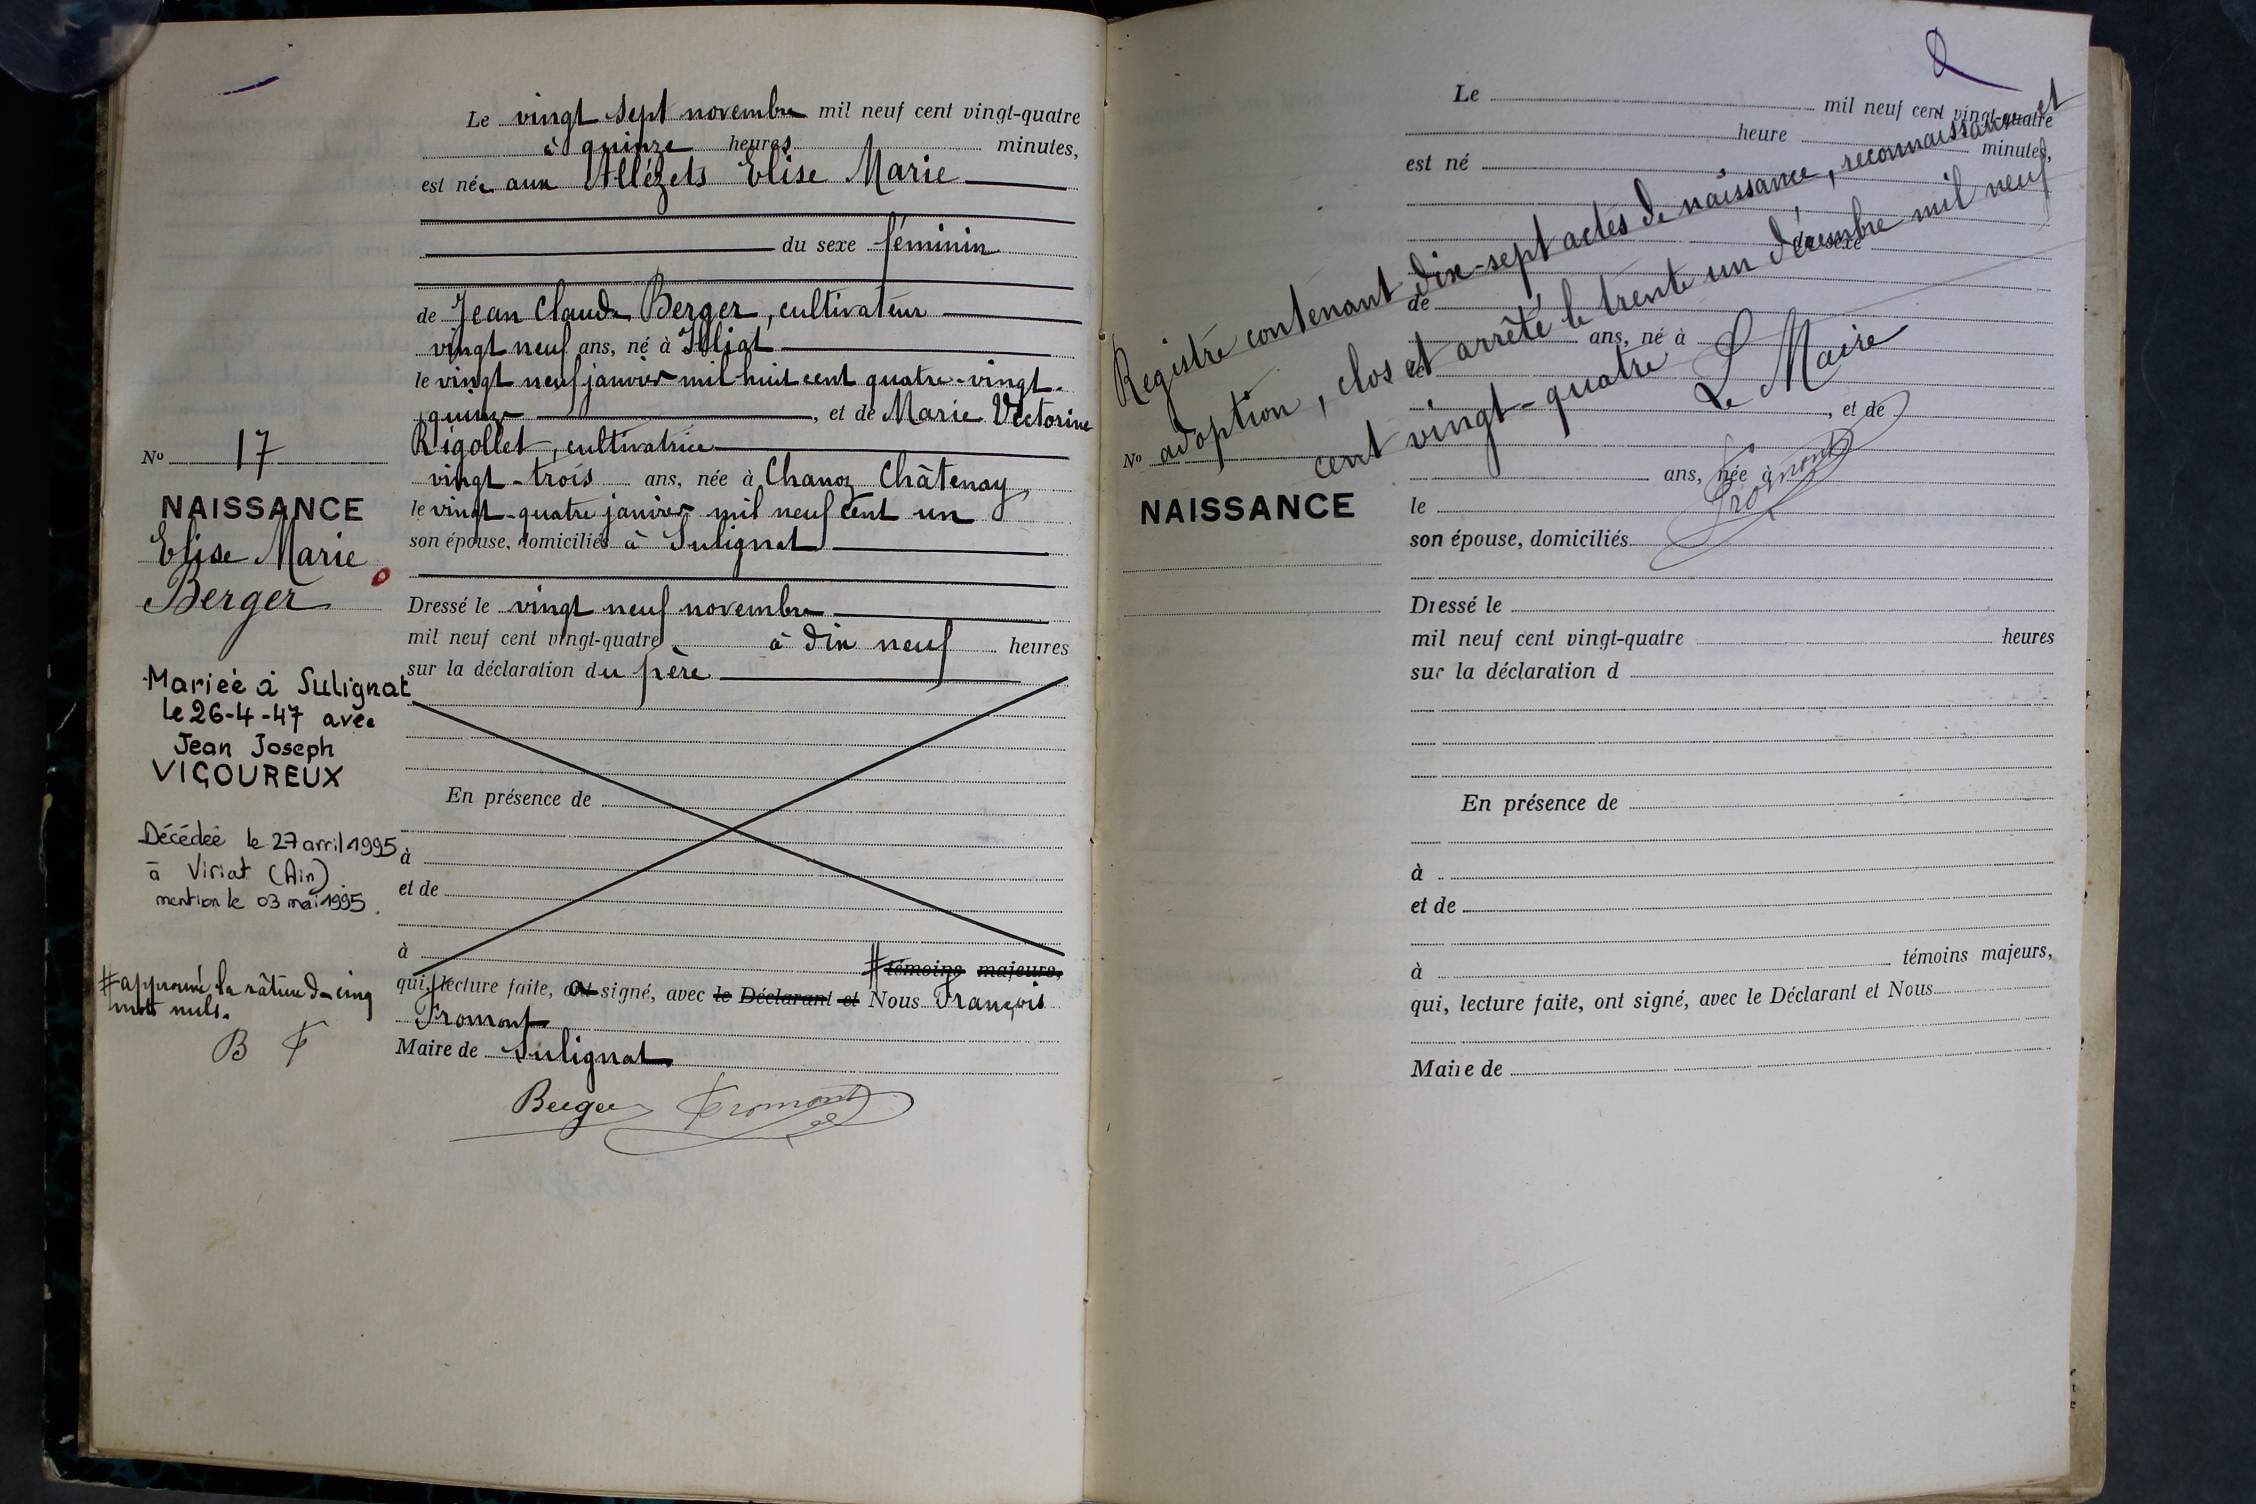 Le vingt sept novembre mil neuf cent vingt-quatre
à quinze heures minutes,
est née aux Allézets Elise Marie
du sexe féminin
de Jean Claude Berger, cultivateur
vingt neuf ans, né à Illiat
le vingt neuf janvier mil huit cent quatre-vingt-
quinze, et de Marie Victorine
Rigollet, cultivatrice
vingt-trois ans, née à Chanoz Châtenay,
le vingt-quatre janvier mil neuf cent un
son épouse, domiciliés à Sulignat
Dressé le vingt neuf novembre
mil neuf cent vingt-quatre à dix neuf heures
sur la déclaration du père
En présence de
à
et de
à # témoins majeurs,
qui, lecture faite, ont signé, avec le Déclarant et Nous François
Fromont
Maire de Sulignat
Berger Fromont
No 17
NAISSANCE
Elise Marie
Berger
Mariée à Sulignat
le 26-4-47 avec
Jean Joseph
VIGOUREUX
Décédée le 27 avril 1995
à Viriat (Ain)
mention le 03 mai 1995.
# approuvé la râture de cinq
mots nuls.
B F
Le mil neuf cent vingt-quatre
heure minutes,
est né
du sexe
de
ans, né à
le
, et de
ans, née à
le
son épouse, domiciliés
Dressé le
mil neuf cent vingt-quatre heures
sur la déclaration d
En présence de
à
et de
à témoins majeurs,
qui, lecture faite, ont signé, avec le Déclarant et Nous
Maire de
No
NAISSANCE
Registre contenant dix-sept actes de naissance, reconnaissance et
adoption, clos et arrêté le trente un décembre mil neuf
cent vingt-quatre Le Maire
Fromont